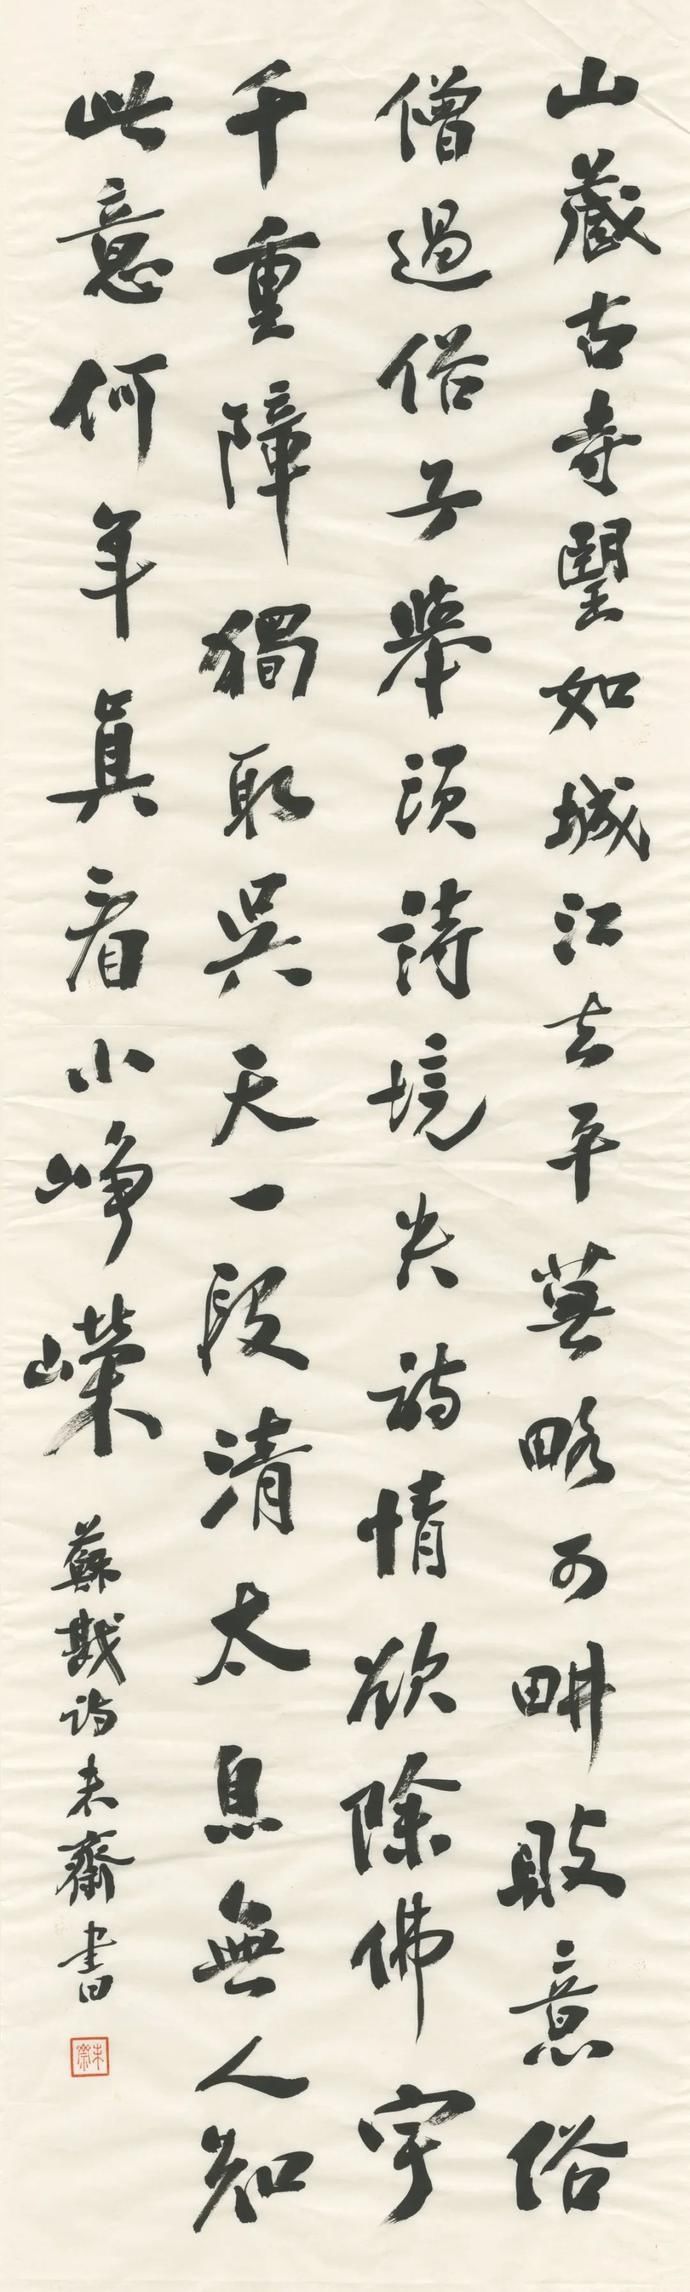 山藏古寺朢如城江去平蕪略可畊敗意俗
僧過俗子舉頭詩境失詩情欲除佛宇
千重障獨取吳天一段清太息無人知
此意何年眞看小崢嶸
蘇戡詩未齋書